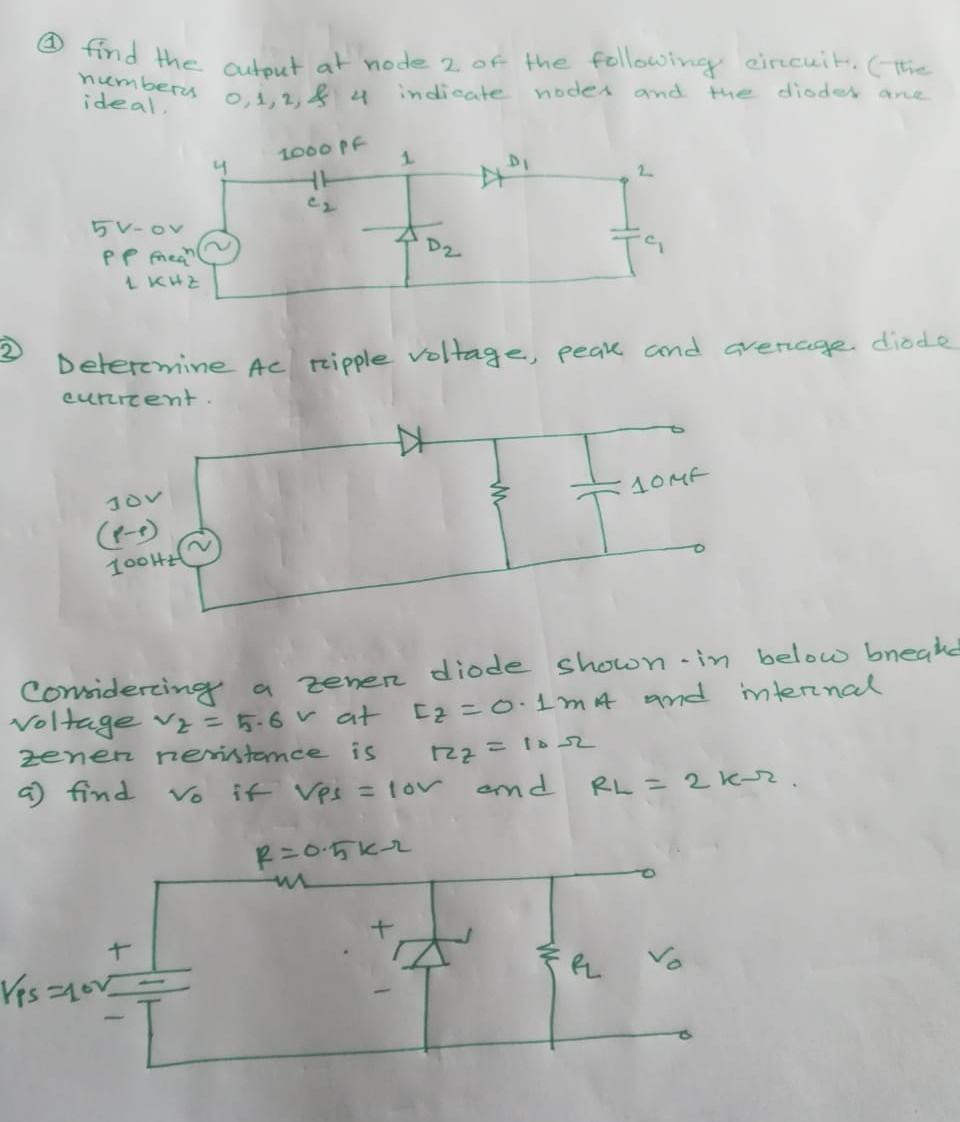 ① find the output at node 2 of the following circuit. (The
numbers 0,1,2, & 4 indicate nodes and the diodes are
ideal.
1000 PF
4
1
D1
2
C2
5V-0V
PP freqn
1 KHZ
D2
C1
② Determine AC ripple voltage, peak and average diode
current.
10V
(P-P)
100Hz
10MF
Considering a zener diode shown in below breakd
voltage Vz = 5.6 v at Iz = 0.1mA and internal
zener resistance is rz = 10Ω
a) find Vo if Vps = 10v and RL = 2 kΩ.
R=0.5KΩ
+
+
Vps=10V
-
-
RL
Vo